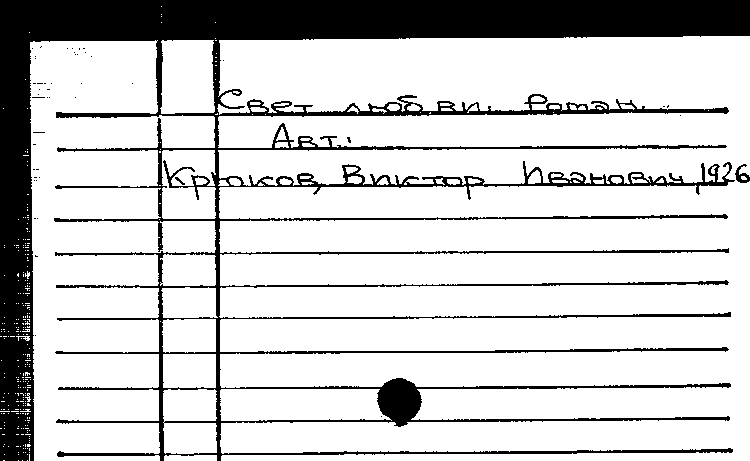 Свет любви. Роман.
Авт.:
Крюков, Виктор Иванович, 1926